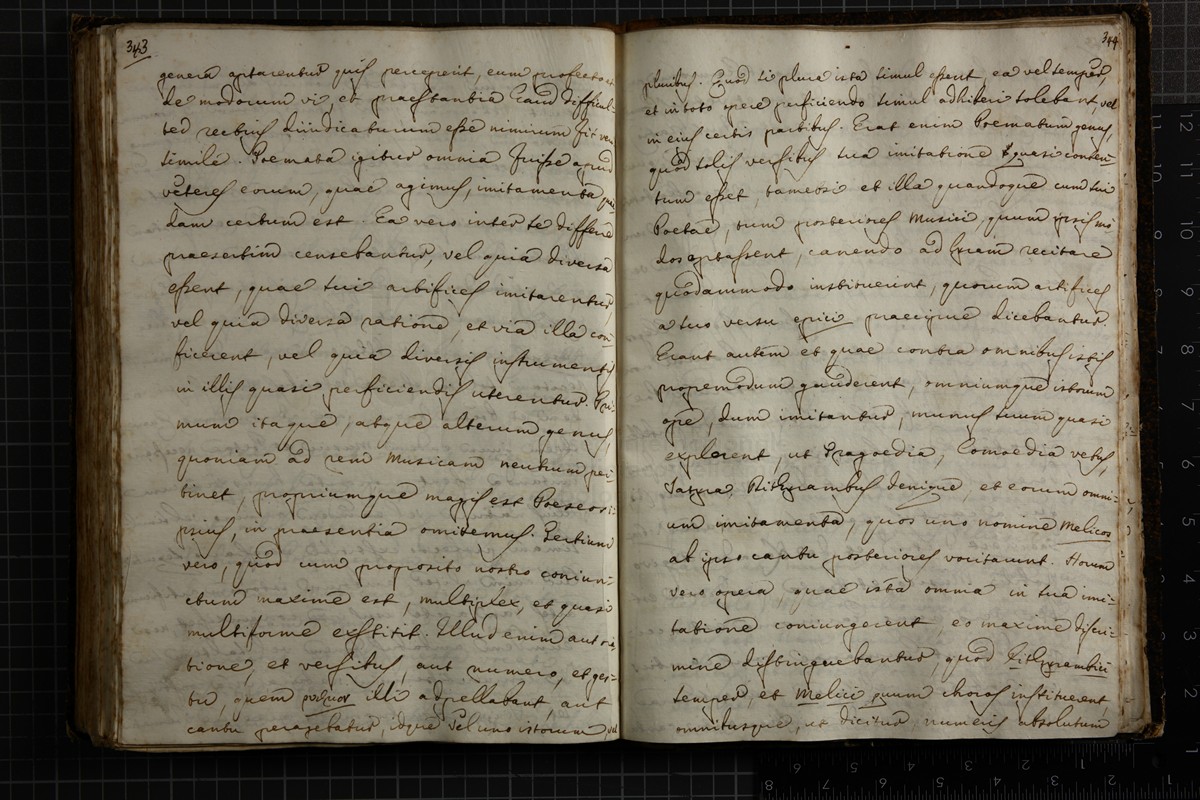 343
genera aptarentur quis perceperit, eum profecto
de modorum vi, et praestantia haud difficul-
ter rectius diiudicaturum esse nimirum sit veri
simile. Poemata igitur omnia fuisse apud
veteres eorum, quae agimus, imitamenta quae
dam certum est. Ea vero inter se differre
praesertim censebantur, vel quia diversa
essent, quae sui artifices imitarentur
vel quia diversa ratione, et via illa con
ficerent, vel quia diversis instrumentis
in illis quasi perficiendis uterentur. Pri-
mum itaque, atque alterum genus,
quoniam ad rem Musicam neutrum per
tinet, propriumque magis est Poeseos i-
psius, in praesentia omitemus. Tertium
vero, quod cum proposito nostro coniun-
ctum maxime est, multiplex, et quasi
multiforme exstitit. Illud enim aut ra
tione, et versibus, aut numero, et ges-
tu, quem ῥυθμον illi adpellabant, aut
cantu peragebatur, idque vel uno istorum, vel
344
pluribus. Quod si plura ista simul essent, ea vel semper,
et in toto opere perficiendo simul adhiberi solebant, vel
in eius certis partibus. Erat enim Poematum genus,
quod solis versibus sua imitatione quasi conten-
tum esset, tametsi et illa quandoque cum sui
Poetae, tum posteriores Musici, quum ipsis mo
dos aptassent, canendo ad lyram recitare
quodammodo instituerint, quorum artifices
a suo versu epici praecipue dicebantur
Erant autem et quae contra omnibus istis
propemodum gauderent, omniumque istorum
ope, dum imitantur, munus suum quasi
explerent, ut Tragoedia, Comoedia vetus,
Satyra, Dithyrambus denique et eorum omni-
um imitamenta, quos uno nomine Melicos
ab ipso cantu posteriores vocitarunt. Horum
vero opera, quae ista omnia in sua imi-
tatione coniungerent, eo maxime discri-
mine distinguebantur, quod Dithyrambici
semper, et Melici quum choros instituerent,
omnibusque, ut dicitur, numeris absolutum